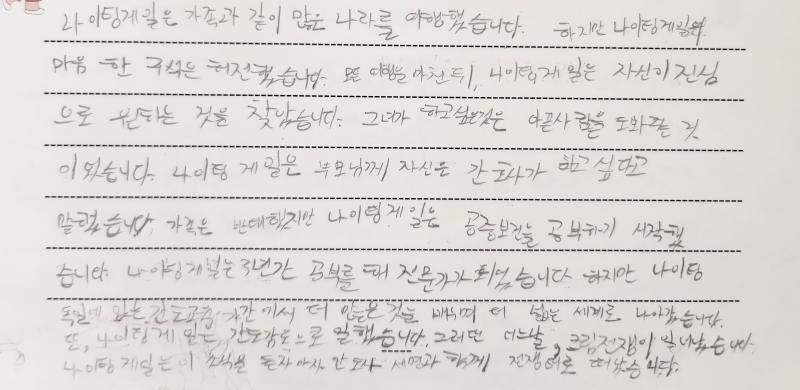 나이팅게일은 가족과 같이 많은 나라를 여행했습니다. 하지만 나이팅게일의
마음 한 구석은 허전했습니다. 모든 여행을 마친 뒤, 나이팅게일는 자신이 진심
으로 원하는 것을 찾았습니다. 그녀가 하고싶은것은 아픈사람을 도와주는 것
이었습니다. 나이팅게일은 부모님께 자신은 간호사가 하고 싶다고
말했습니다. 가족은 반대했지만 나이팅게일은 공중보건을 공부하기 시작했
습니다. 나이팅게일는 3년간 공부를 해 전문가가 되었습니다 하지만 나이팅
독일에 있는 간호 에서 더 많은 것을 배우며 더 넓은 세계로 나아갔습니다.
또, 나이팅게일는, 간호감독으로 일했습니다. 그러던 어느날, 크림전쟁이 일어났습니다.
나이팅게일는 이 소식을 듣자마자 간호사 세명과 함께 전쟁터로 떠났습니다.